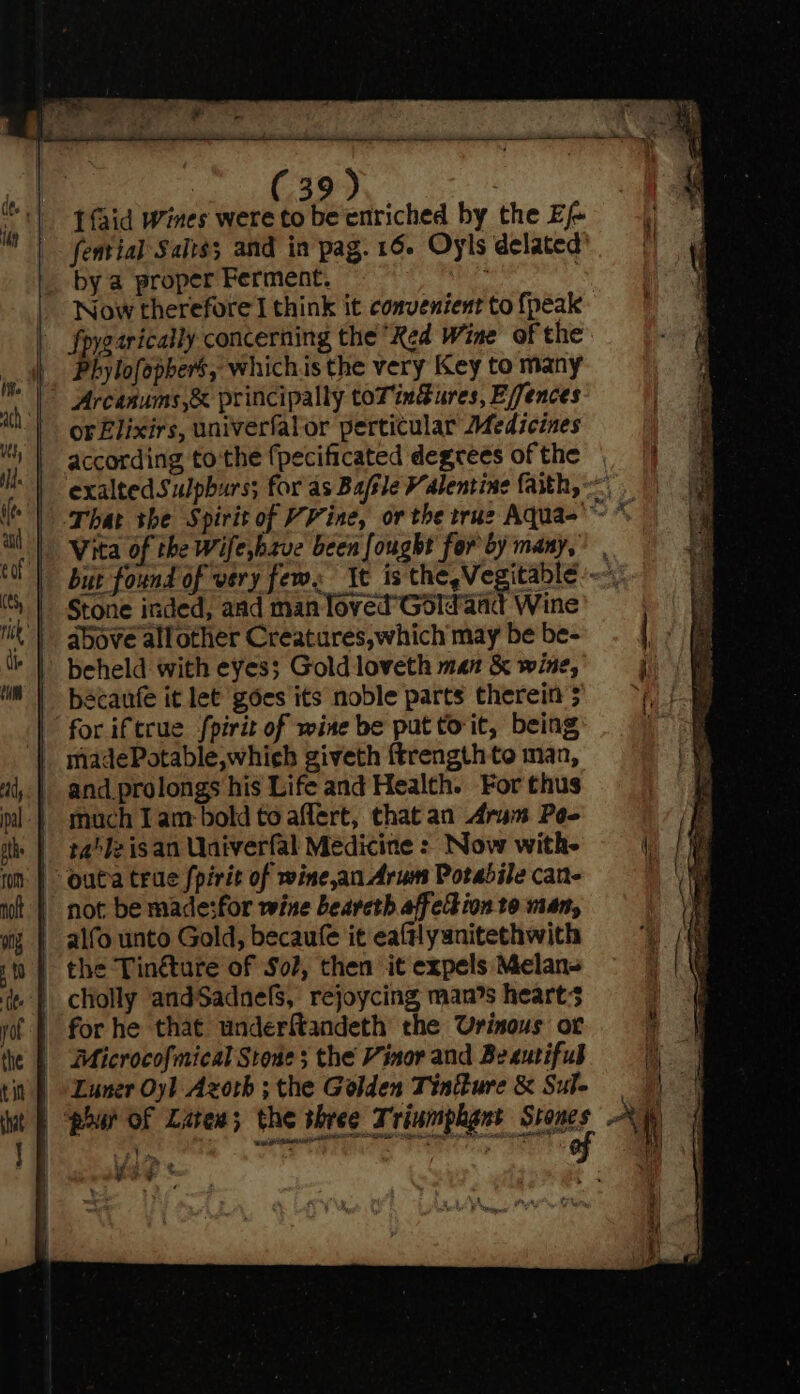 ( 39 )
I ſaid Wines were to be enriched by the Eſ-
ſential Salts; and in pag. 16. Oyls delated
by a proper Ferment.
Now therefore I think it convenient to ſpeak
ſpygarically concerning the Red Wine of the
Phyloſophers, which is the very Key to many
Arcanums, & principally to Tinctures, Eſſences
or Elixirs, univerſal or perticular Medicines
according to the ſpecificated degrees of the
exalted Sulphurs; for as Baſile Valentine ſaith,
That the Spirit of VVine, or the true Aqua-
Vita of the Wiſe, have been ſought for by many,
but found of very few. It is the, Vegitable
Stone inded, and man loved Gold and Wine
above all other Creatures, which may be be-
beheld with eyes; Gold loveth man & wine,
becauſe it let goes its noble parts therein;
for if true ſpirit of wine be put to it, being
made Potable, which giveth ſtrength to man,
and prolongs his Life and Health. For thus
much I am bold to aſſert, that an Arum Po-
table is an Univerſal Medicine: Now with-
out a true ſpirit of wine, an Arum Potabile can-
not be made: for wine beareth affection to man,
alſo unto Gold, becauſe it eaſily unitethwith
the Tincture of Sol, then it expels Melan-
cholly and Sadneſs, rejoycing man's heart;
for he that underſtandeth the Urinous or
Microcoſmical Stone; the Vinor and Beautiful
Luner Oyl Azoth; the Golden Tincture & Sul-
phur of Laten; the three Triumphant Stones
of